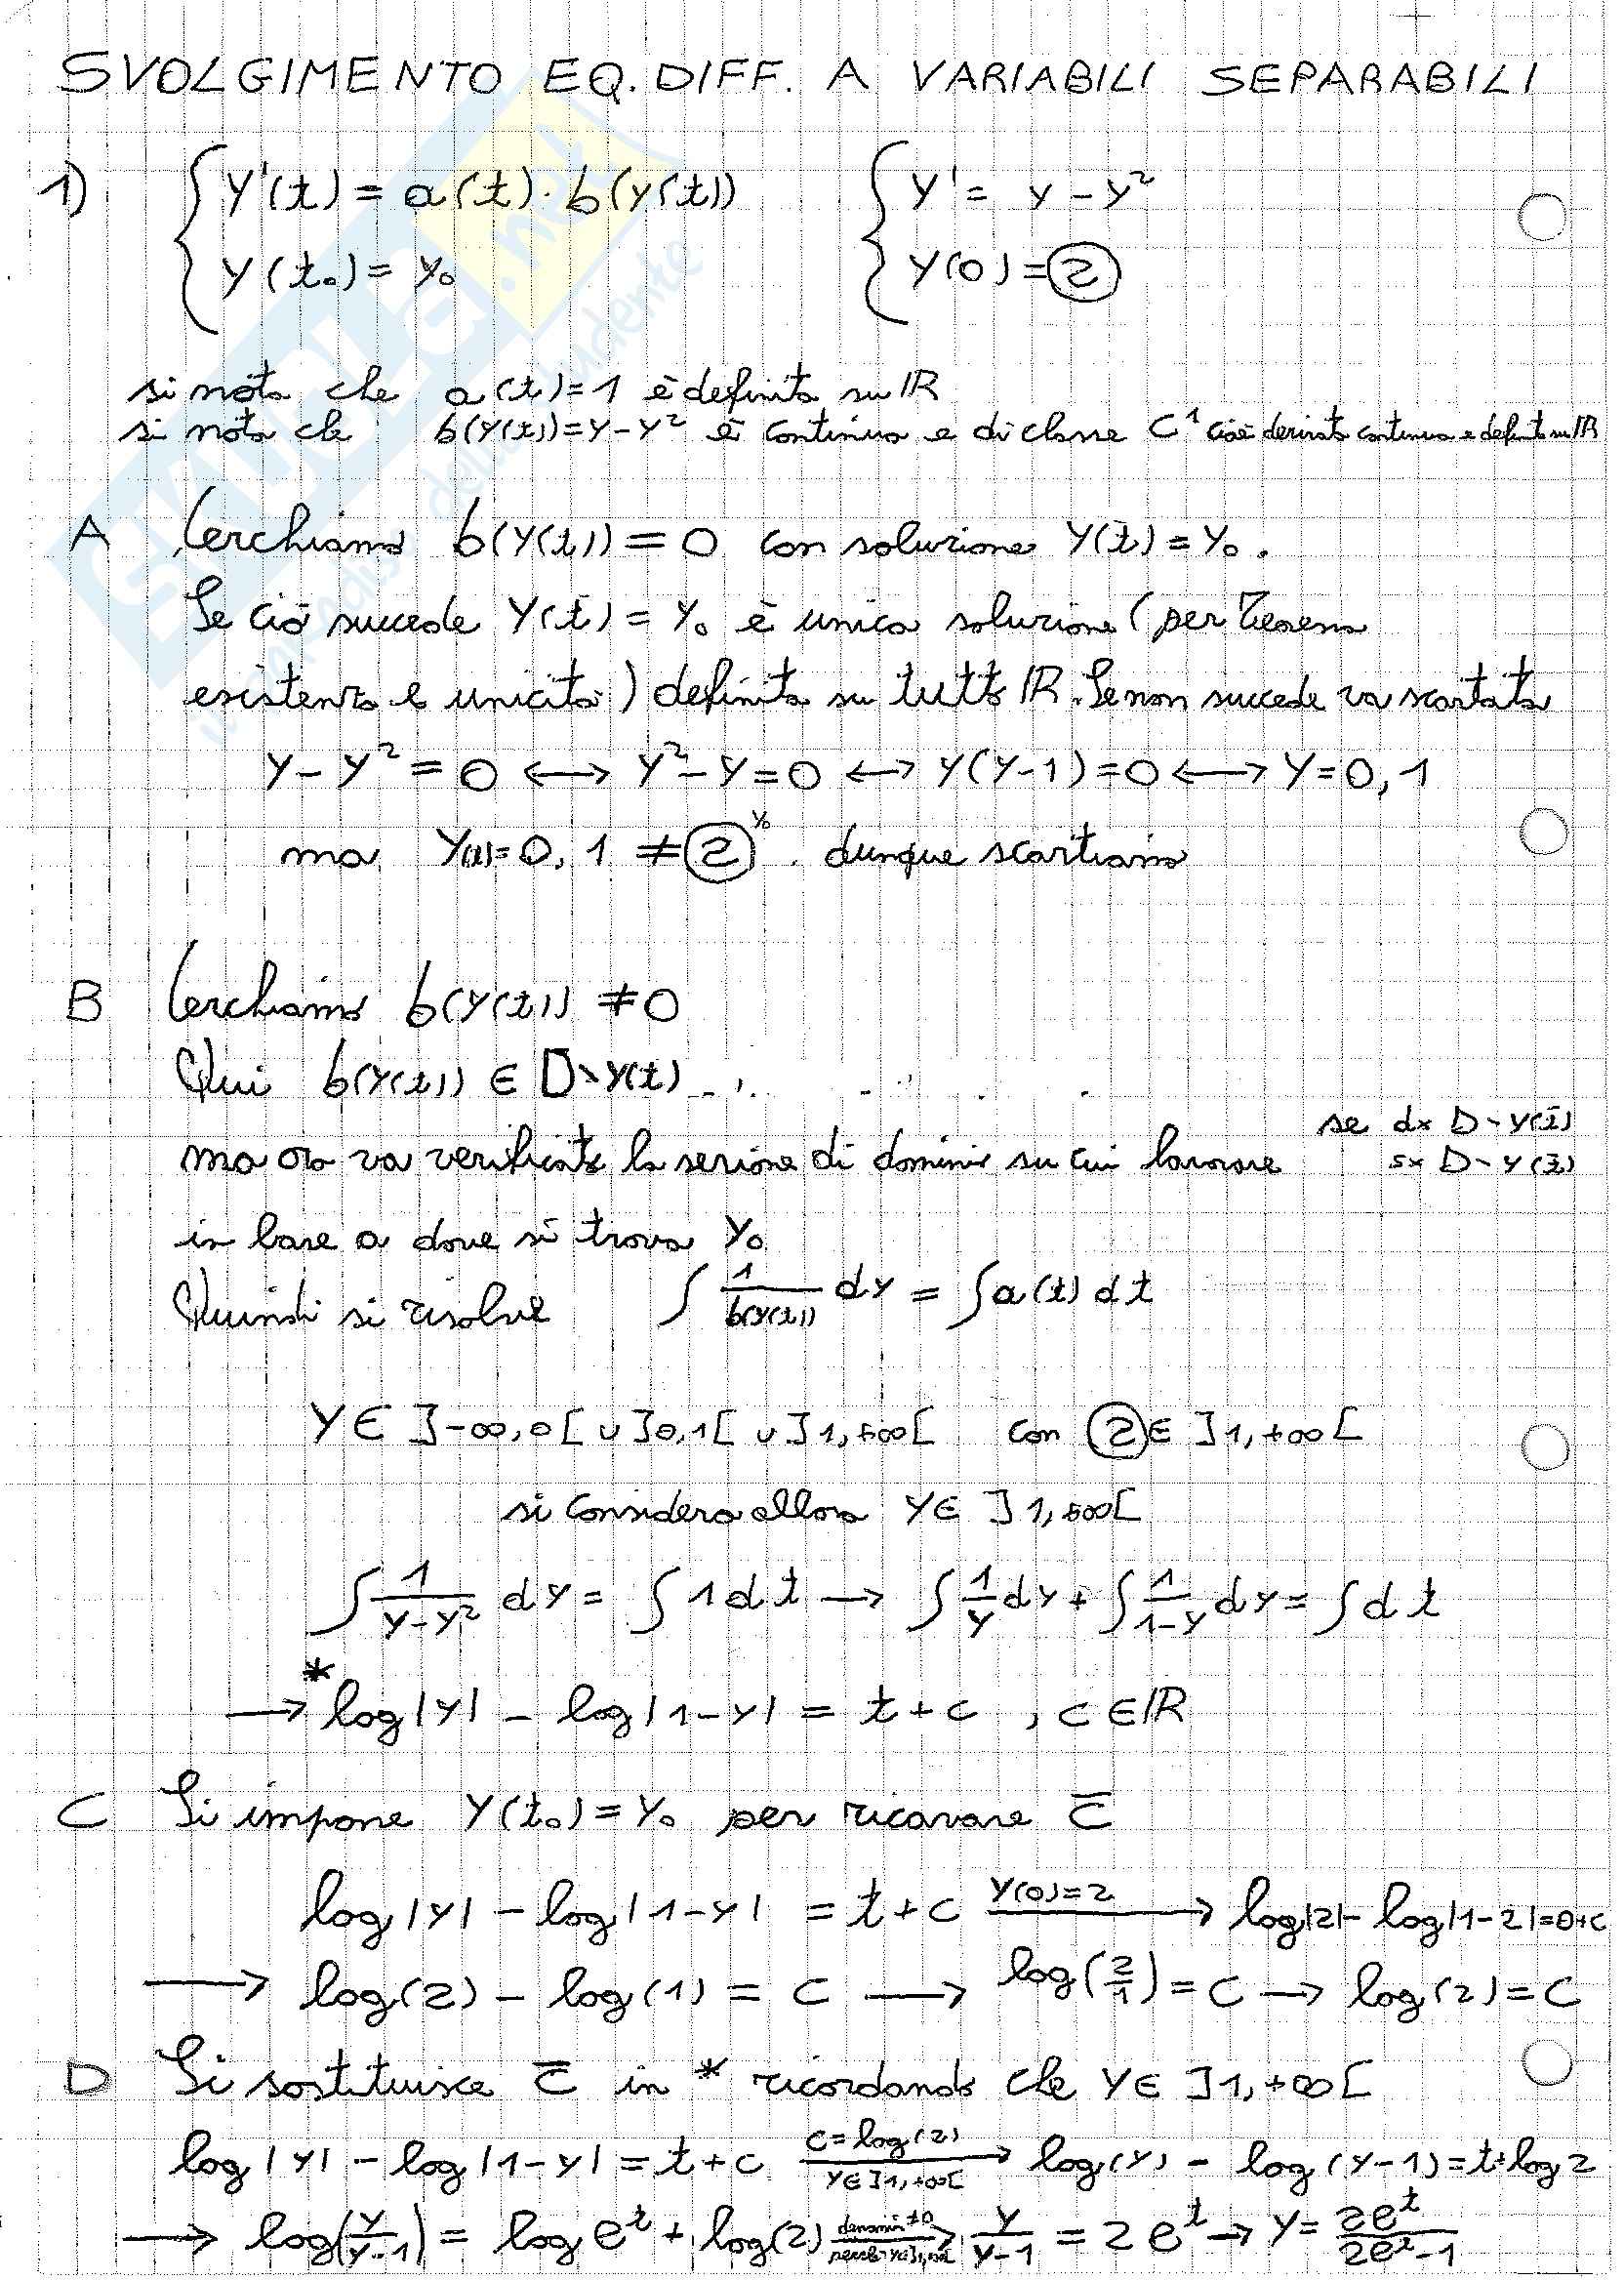 SVOLGIMENTO EQ. DIFF. A VARIABILI SEPARABILI
1) { y'(t) = a(t) · b(y(t)) { y' = y - y²
y(t₀) = y₀ y(0) = 2
si nota che a(t)=1 è definita su ℝ
si nota che b(y(t))=y-y² è continua e di classe C¹ cioè derivata continua e definita su ℝ
A Cerchiamo b(y(t)) = 0 con soluzione y(t̄) = y₀.
Se ciò succede y(t̄) = y₀ è unica soluzione (per Teorema
esistenza e unicità) definita su tutto ℝ. Se non succede va scartata
y - y² = 0 ⟷ y² - y = 0 ⟷ y(y-1) = 0 ⟷ y = 0, 1
ma y(t) = 0, 1 ≠ 2 y₀ . dunque scartiamo
B Cerchiamo b(y(t)) ≠ 0
Qui b(y(t)) ∈ D∖y(t)
ma ora va verificata la sezione di dominio su cui lavorare se dx D∖y(t̄)
sx D∖y(t̄)
in base a dove si trova y₀
Quindi si risolve ∫ 1/b(y(t)) dy = ∫ a(t) dt
y ∈ ]-∞,0[ ∪ ]0,1[ ∪ ]1,+∞[ con 2 ∈ ]1,+∞[
si considera allora y ∈ ]1,+∞[
∫ 1/(y-y²) dy = ∫ 1 dt → ∫ 1/y dy + ∫ 1/(1-y) dy = ∫ dt
→ * log|y| - log|1-y| = t+c , c ∈ ℝ
C Si impone y(t₀) = y₀ per ricavare c̄
log|y| - log|1-y| = t+c y(0)=2 → log|2| - log|1-2| = 0+c
→ log(2) - log(1) = c → log(2/1) = c → log(2) = c
D Si sostituisce c̄ in * ricordando che y ∈ ]1,+∞[
log|y| - log|1-y| = t+c c=log(2) y∈]1,+∞[ → log(y) - log(y-1) = t+log 2
→ log(y/(y-1)) = log eᵗ + log(2) denomin ≠0 → y/(y-1) = 2eᵗ → y = 2eᵗ/(2eᵗ-1)